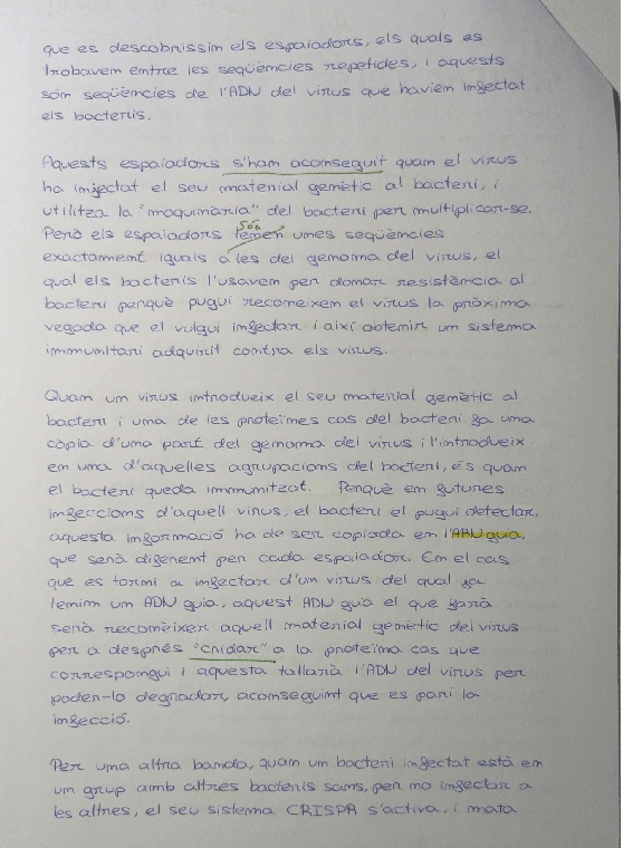 que es descobrissim els espaiadors, els quals es
trobavem entre les seqüències repetides, i aquests
són seqüències de l'ADN del virus que haviem infectat
els bacteris.
Aquests espaiadors s'han aconseguit quan el virus
ha injectat el seu material genètic al bacteri, i
utilitza la "maquinària" del bacteri per multiplicar-se.
Són
Però els espaiadors temen unes seqüències
exactament iguals a les del genoma del virus, el
qual els bacteris l'usaven per donar resistència al
bacteri perquè pugui reconeixem el virus la pròxima
vegada que el vulgui infectar i així obtenir un sistema
immunitari adquirit contra els virus.
Quan un virus introdueix el seu material genètic al
bacteri i una de les proteïnes cas del bacteri fa una
còpia d'una part del genoma del virus i l'introdueix
en una d'aquelles agrupacions del bacteri, és quan
el bacteri queda immunitzat. Perquè en futures
infeccions d'aquell virus, el bacteri el pugui detectar,
aquesta informació ha de ser copiada en l'ARN guia,
que serà diferent per cada espaiador. En el cas
que es torni a infectar d'un virus del qual ja
tenim un ADN guia, aquest ADN guia el que farà
serà reconèixer aquell material genètic del virus
per a després "cridar" a la proteïna cas que
correspongui i aquesta tallarà l'ADN del virus per
poder-lo degradar, aconseguint que es pari la
infecció.
Per una altra banda, quan un bacteri infectat està en
un grup amb altres bacteris sans, per no infectar a
les altres, el seu sistema CRISPR s'activa, i mata